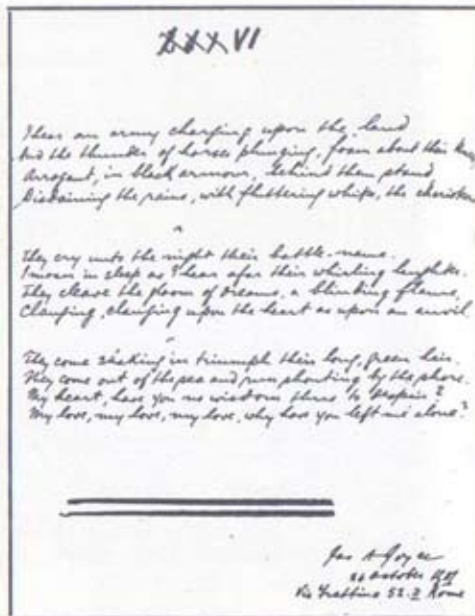 XXXVI
I hear an army charging upon the land
And the thunder of horses plunging, foam about their knees
Arrogant, in black armour, behind them stand
Disdaining the reins, with fluttering whips, the charioteers
They cry unto the night their battle-name.
I moan in sleep as I hear afar their whirling laughter.
They cleave the gloom of dreams, a blinding flame,
Clanging, clanging upon the heart as upon an anvil.
They come shaking in triumph their long, green hair.
They come out of the sea and run shouting by the shore.
My heart, have you no wisdom thus to despair?
My love, my love, my love, why have you left me alone?
Jas A Joyce
October
Via Frattina 52. II Rome